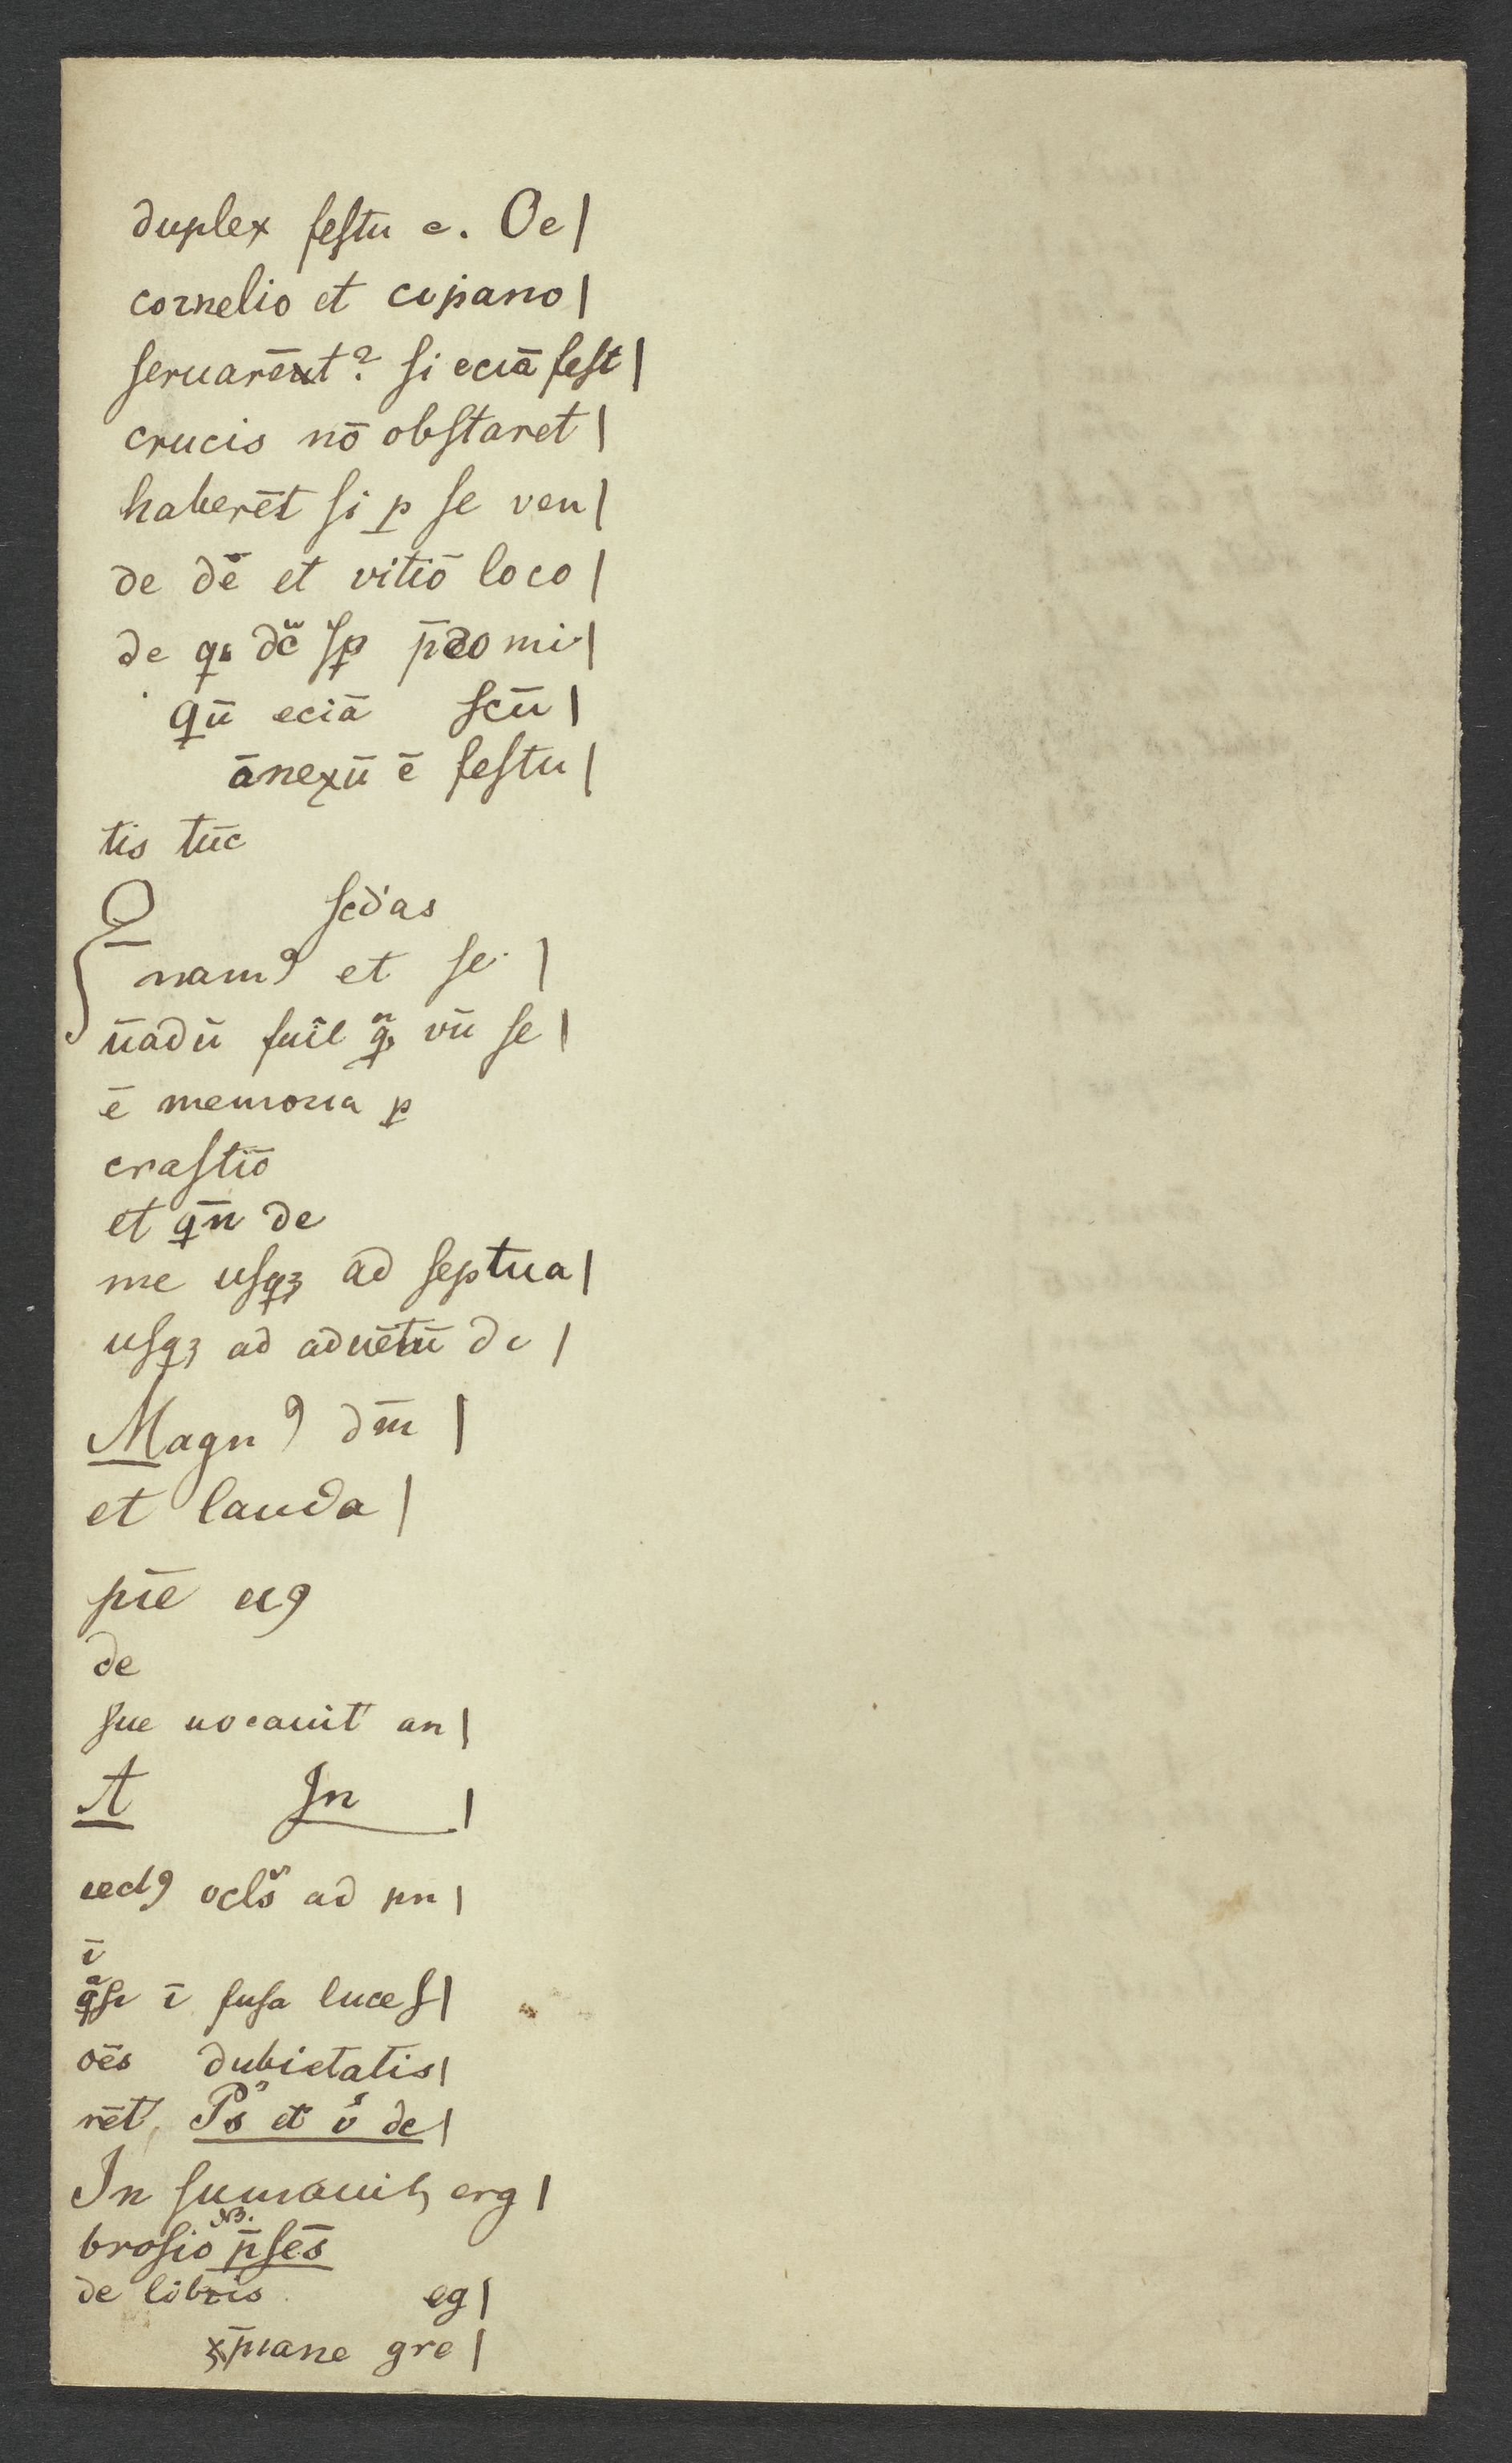 duplex feſtu e. Oe |
cornelio et cipano |
ſeruarēnt? ſi eciā feſt |
crucis nō obſtaret |
haberēt ſi p̱ ſe ven |
de dē et vitiō loco |
de ꝓmi |
qū eciā ſcū |
ānexū ē feſtu |
tis tūc
O ſcd'as
namꝯ et ſe |
ūadū vū ſe |
ē memoria p̱
craſtīo
et qn̄ de
me uſqꝫ ad ſeptua |
uſqꝫ ad aduētū de |
Magnꝯ dm̄ |
et lauda |
pīe eiꝯ
de
ſue uocauit an |
A In |
ocls̄ ad pn |
ī
qͣſi ī fuſa luceſ |
oēs dubietatis |
rēt, Ps et v̊ de |
In ſumauit, erg |
NB.
broſio p̄ſēs
de libris eg |
xp̄iane gre |